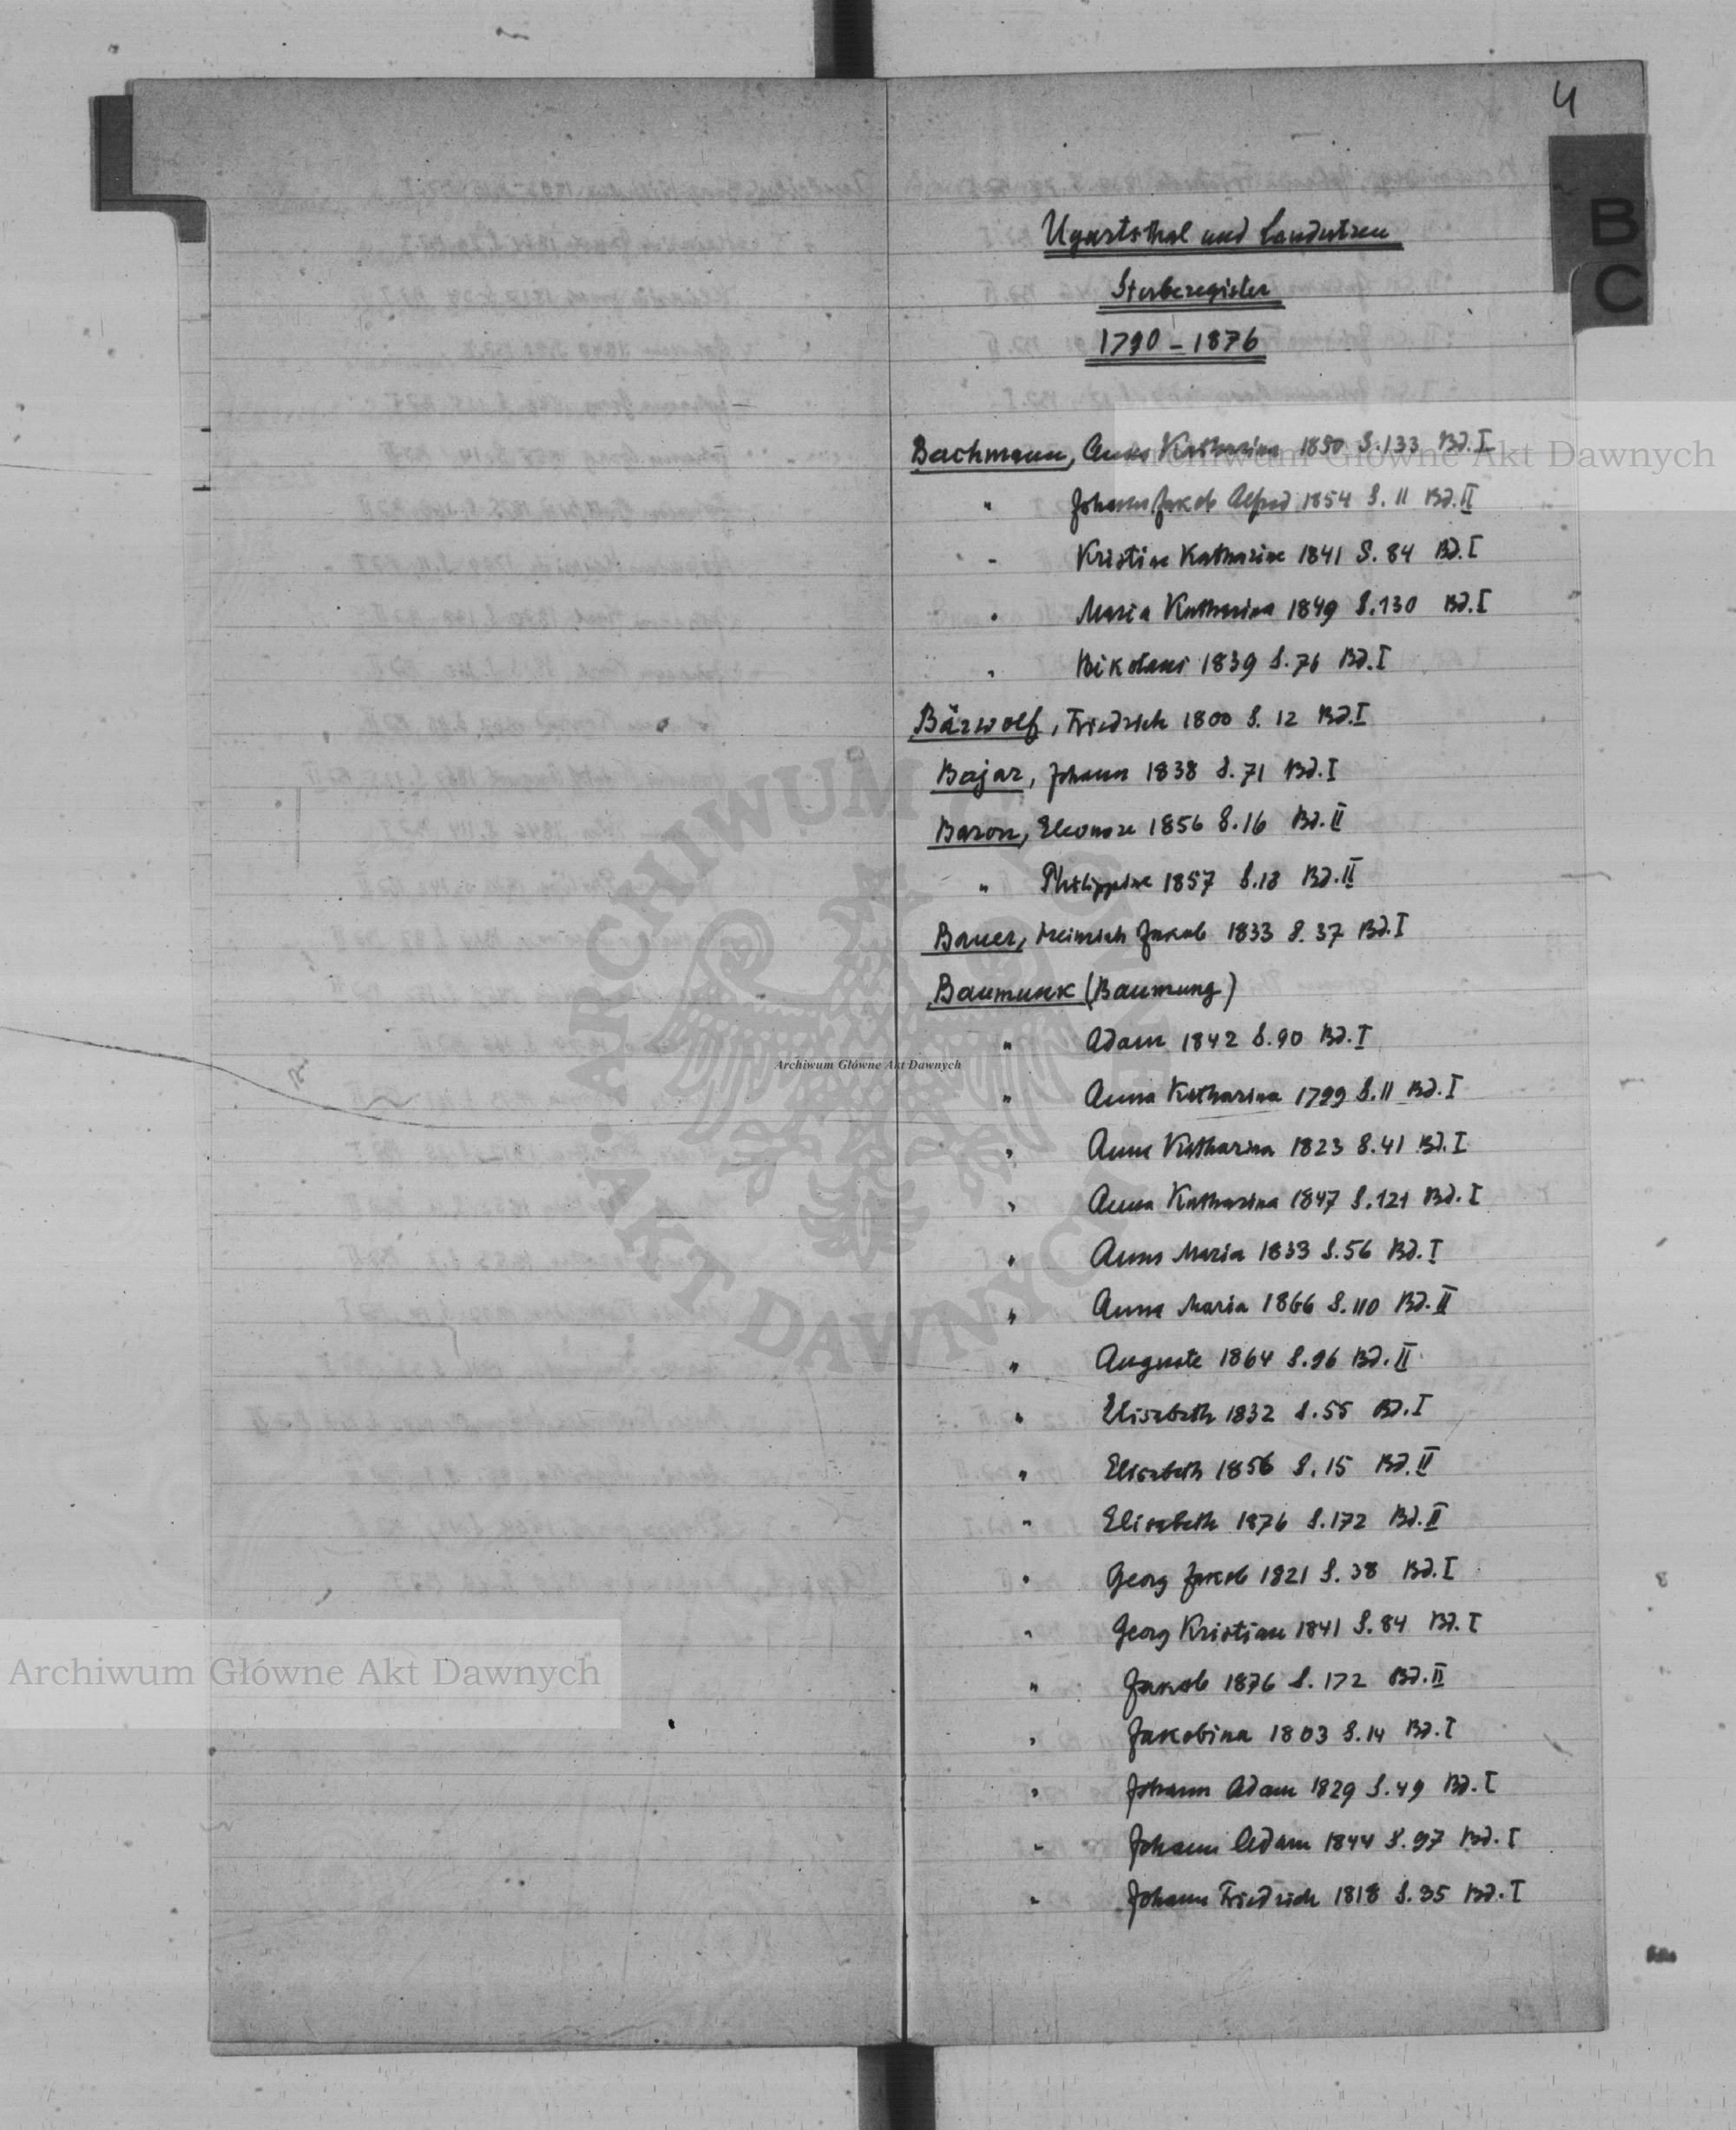 4
B
C
Ugartsthal und Landestreu
Sterberegister
1790 - 1876
Bachmann, Anna Katharina 1850 S.133 Bd.I
" Johann Jakob Alfred 1854 S. 11 Bd.II
" Kristine Katharine 1841 S. 84 Bd.I
" Maria Katharina 1849 S.130 Bd.I
" Nikolaus 1839 S. 76 Bd.I
Bärwolf, Friedrich 1800 S. 12 Bd.I
Bajar, Johann 1838 S. 71 Bd.I
Baron, Eleonore 1856 S.16 Bd.II
" Philippine 1857 S.18 Bd.II
Bauer, Heinrich Jakob 1833 S. 37 Bd.I
Baumunk (Baumung)
" Adam 1842 S.90 Bd.I
" Anna Katharina 1799 S.11 Bd.I
" Anna Katharina 1823 S.41 Bd.I
" Anna Katharina 1847 S.121 Bd.I
" Anna Maria 1833 S.56 Bd.I
" Anna Maria 1866 S.110 Bd.II
" Auguste 1864 S.96 Bd.II
" Elisabeth 1832 S.55 Bd.I
" Elisabeth 1856 S.15 Bd.II
" Elisabeth 1876 S.172 Bd.II
" Georg Jakob 1821 S. 38 Bd.I
" Georg Kristian 1841 S.84 Bd.I
" Jakob 1876 S. 172 Bd.II
" Jakobina 1803 S.14 Bd.I
" Johann Adam 1829 S.49 Bd.I
" Johann Adam 1844 S.97 Bd.I
" Johann Friedrich 1818 S.35 Bd.I
Archiwum Główne Akt Dawnych
ARCHIWUM GŁÓWNE
AKT DAWNYCH
Archiwum Główne Akt Dawnych
Archiwum Główne Akt Dawnych